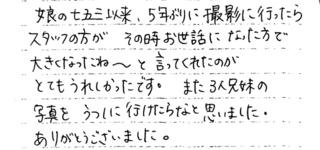 娘の七五三以来、5年ぶりに撮影に行ったら
スタッフの方が その時お世話になった方で
大きくなったね〜と言ってくれたのが
とてもうれしかったです。 また3人兄妹の
写真を うつしに行けたらなと思いました。
ありがとうございました。